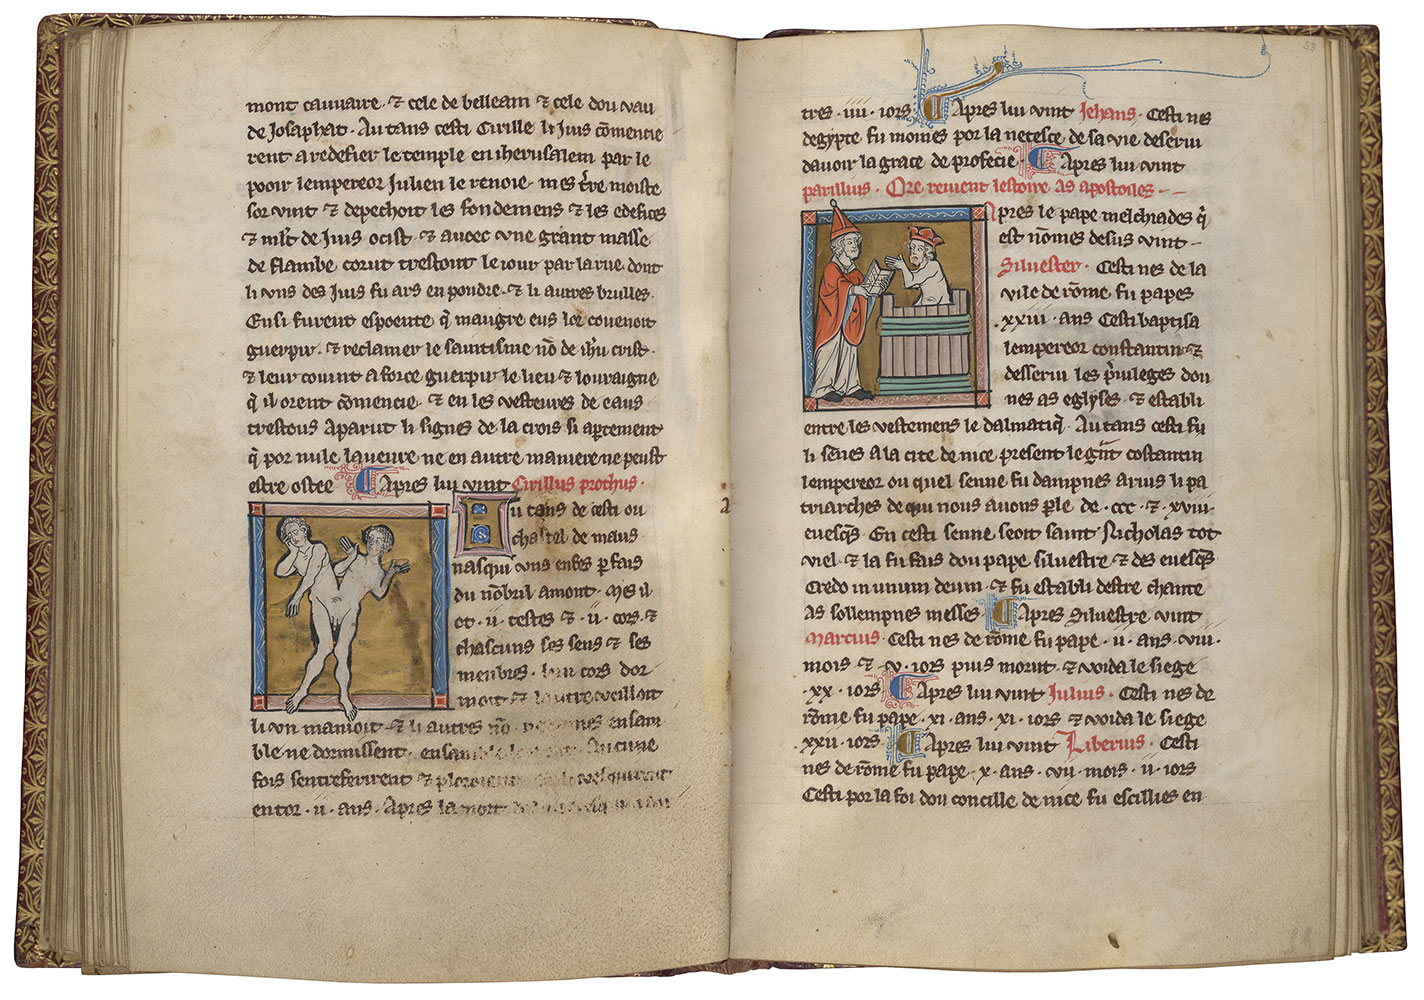 mont cauuaire · ⁊ cele de belleam ⁊ cele dou vau
de Josaphat · Au tans cesti Cirille li Juis cōmencie
rent a redefier le temple en iherusalem par le
pooir lempereor Julien le renoie · mes
sor vint ⁊ depechoit les fondemens ⁊ les edefices
⁊ de Juis ocist · ⁊ auec vne grant masse
de flambe corut trestout le iour par la rue dont
li vns des Juis fu ars en poudre · ⁊ li autres brulles ·
Ensi furent espoente q̄ maugre eus lor couenoit
guerpir · ⁊ reclamer le saintisme nō de ih'u crist ·
⁊ leur couint a force guerpir le lieu ⁊ louraigne
q̄ il orent cōmencie · ⁊ en les vesteures de eaus
trestous aparut li signes de la crois si apertement
q̄ por nule laueure ne en autre maniere ne peust
estre ostee · Apres lui vint Cirillus prothus ·
Au tans de cesti ou
chastel de maus
nasqui vns enfes p̱fais
du nōbril amont · mes il
ot · ii · testes ⁊ · ii · cors · ⁊
chascuns ses sens ⁊ ses
menbres · li cors dor
moit ⁊ lautre veilloit
li vn manioit · ⁊ li autres nō ensam
ble ne dormissent · Aucune
fois sentreferirent ⁊
entor · ii · ans · Apres la mort
53
tres · iiii · iors Apres lui vint Jehans · Cesti nes
degypte fu moines por la netesce de sa vie deserui
dauoir la grace de profecie · Apres lui vint
parillius · Ore reuient lestoire as apostoiles
Apres le pape melchiades q̄
est nōmes desus vint
Siluester · Cesti nes de la
vile de rōme fu papes
·xxiii· ans Cesti baptisa
lempereor constantin · ⁊
desserui les p'uileges don
nes as eglyses · ⁊ establi
entre les vestemens le dalmatiq̄ · Au tans cesti fu
li sēnes a la cite de nice present le costantin
lempereor ou quel senne fu dampnes arius li pa
triarches de qui nous auons p̱le de · ccc · ⁊ xviii ·
En cesti senne seoit saint Nicholas tot
viel · ⁊ la fu fais dou pape siluestre ⁊ des
Credo in unum deum · ⁊ fu establi destre chante
as sollempnes messes · Apres Siluestre vint
Marcius · Cesti nes de rōme fu pape · ii · ans · viii ·
mois ⁊ · v · iors puis morut · ⁊ voida le siege
·xx · iors Apres lui vint Julius · Cesti nes de
rōme fu pape · xi · ans · xi · iors ⁊ voida le siege
·xxii · iors · Apres lui vint Liberius · Cesti
nes de rōme fu pape · x · ans · vii · mois · ii · iors
Cesti por la foi dou concille de nice fu escillies en